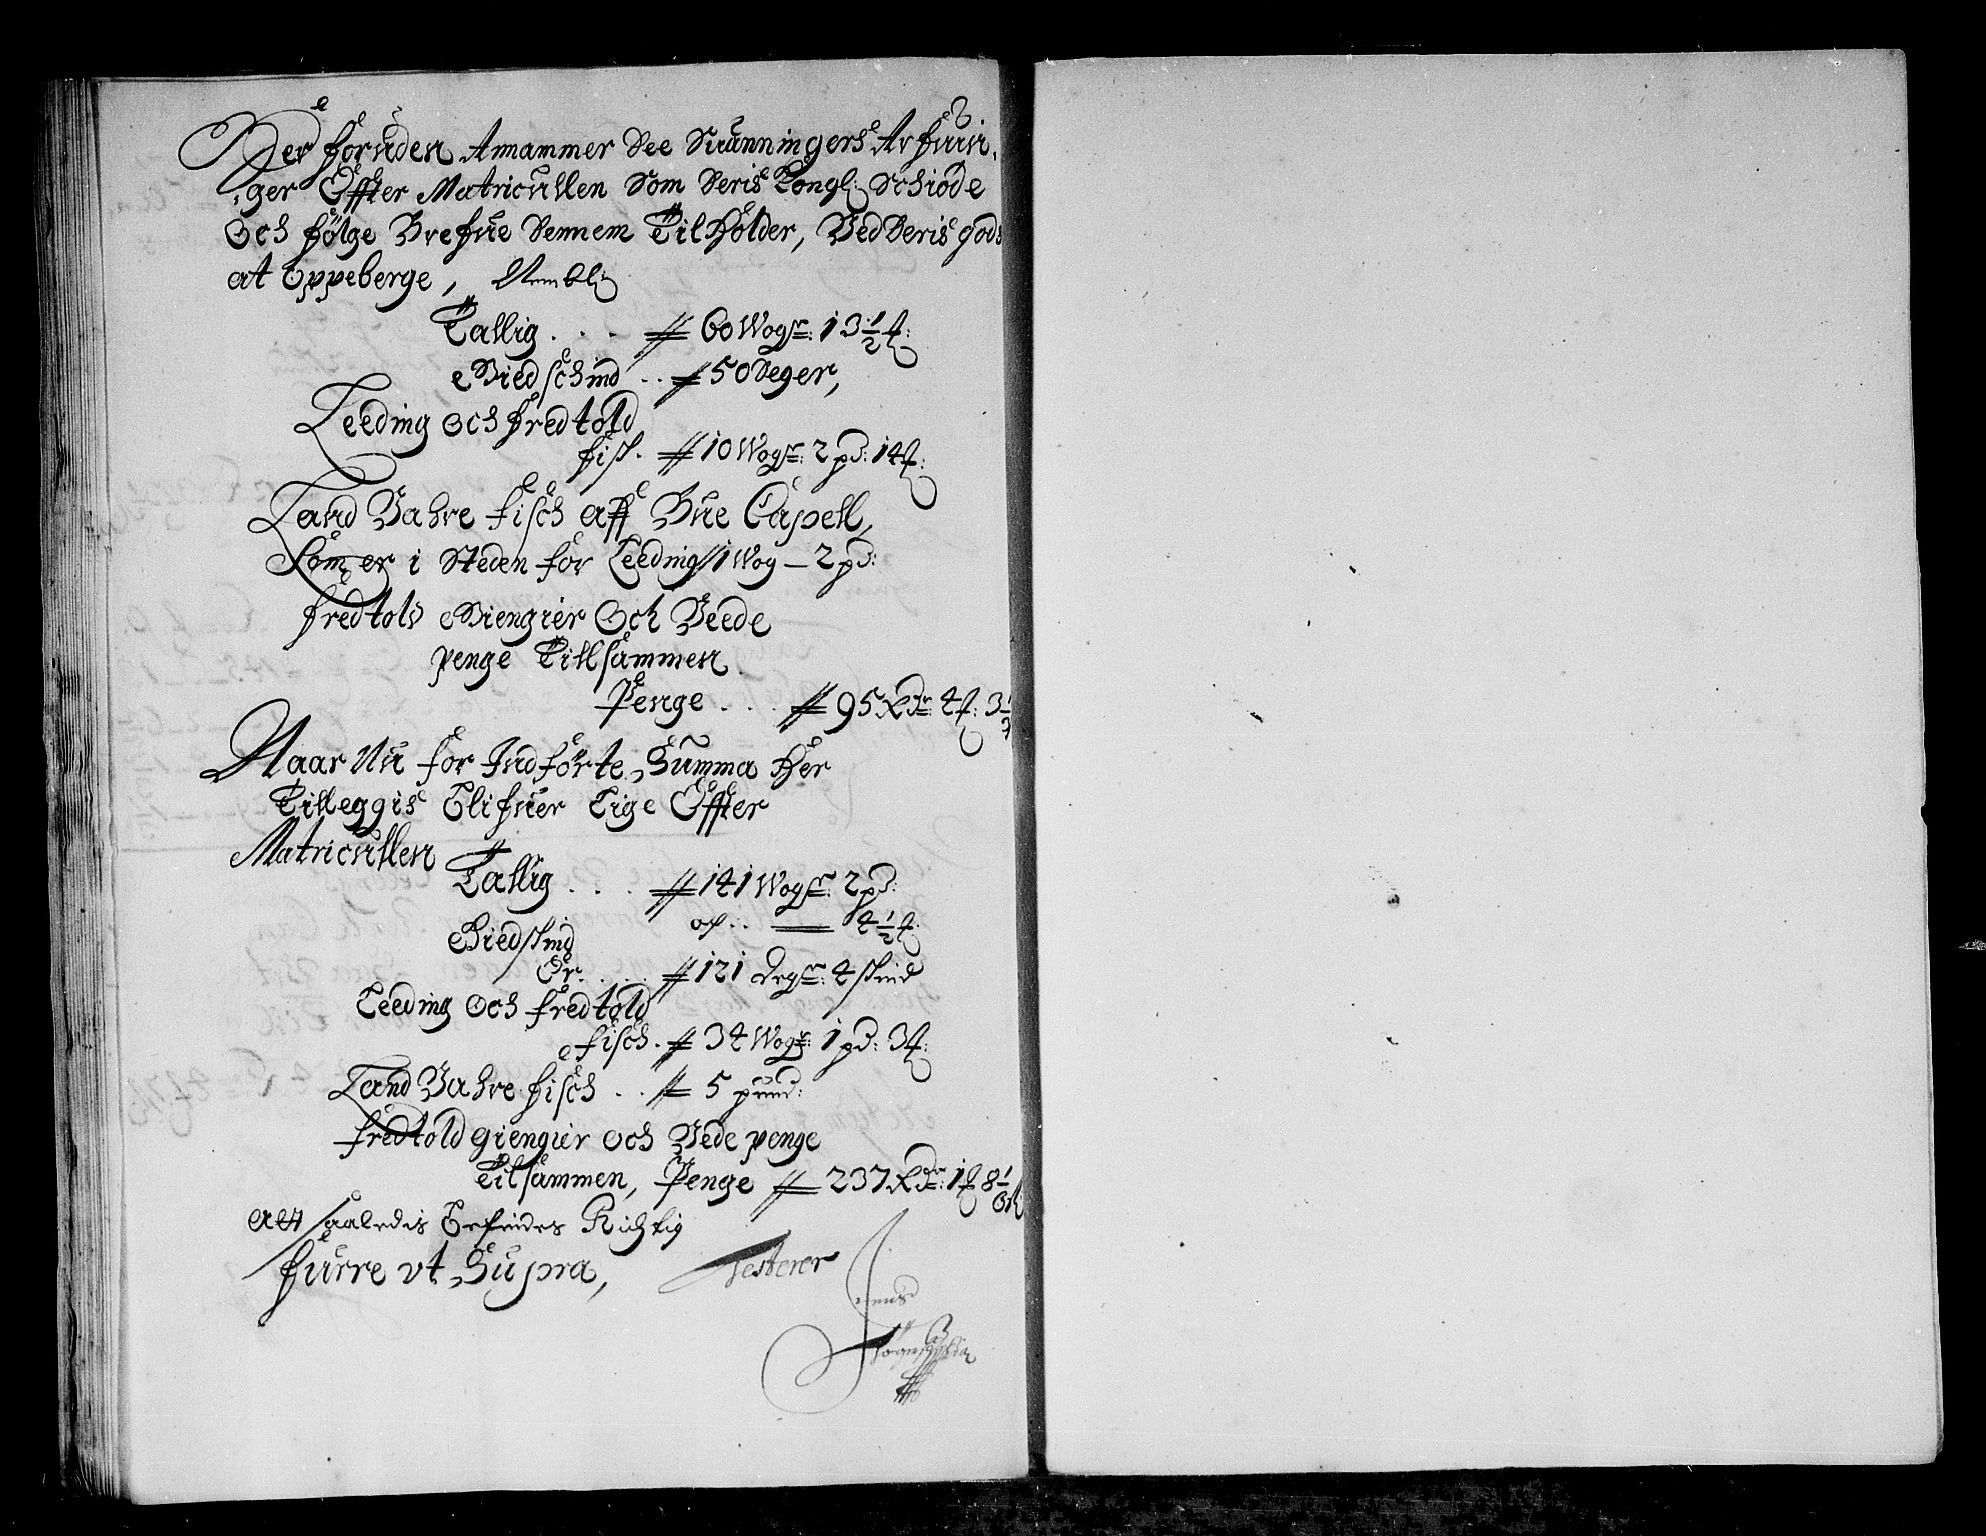 Der foruden Annammer See Suunningers Arfuin¬
ger Effter Matricullen Som Deris Kongl: Schiöde
Och følge Brefue dennem Tilholder, Ved Deris gods
at Oppeberge, Nembl:
Tallig . . . # 60 Wogr: 1 3½ ℔:
Giedschind . . # 50 Deger,
Leeding Och Fredtold
fisk. # 10 Wogr: 2 pd: 14 ℔:
Land Vahre fisch aff Bue Capell,
Som er i Steden for Leeding # 1 Wog — 2 pd:
Fredtold Giengier Och Veede
penge Tillsammen
Penge . . . # 95 Rdr: 4 ℔: 3½
Naar Nu for Indførte Summa Her
Tilleggis Blifuer Lige Effter
Matricullen
Tallig . . . # 141 Wogr: 2 pd:
og . . — 4½ ℔:
Giedskind
Er . . . # 121 Degr: 4 skind
Leeding Och Fredtold
fisch . # 34 Wogr: 1 pd: 3 ℔:
Land Vahre fisch . . # 5 pund:
Fredtold giengier och Vede penge
Tilsammen, Penge # 237 Rdr: 1 ℔ 8½
At saaledis Befindes Rigtig
Ut Supra,
Testerer
Jens